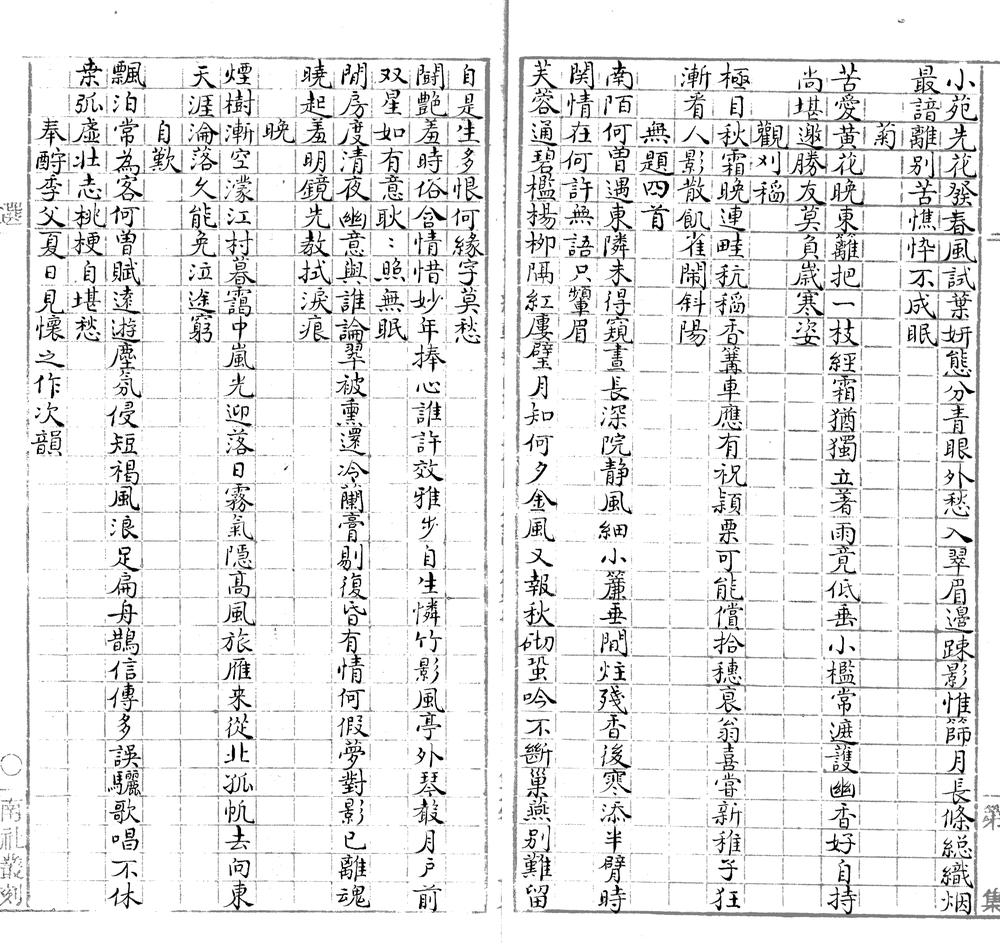 小苑先花發春風試葉妍態分青眼外愁入翠眉邊踈影惟篩月長條総織烟
最諳離别苦憔悴不成眠
菊
苦愛黄花晚東籬把一技經霜猶獨立著雨竟低垂小檻常遮護幽香好自持
尚堪邀勝友莫負歲寒姿
觀刈稻
極目秋霜晚連畦秔稻香篝車應有祝穎栗可能償拾穗哀翁喜嘗新稚子狂
漸看人影散飢雀鬧斜陽
無題四首
南陌何曽遇東隣未得窺晝長深院静風細小簾垂閒炷殘香後寒添半臂時
関情在何許無語只顰眉
芙蓉通碧檻揚柳隔紅廔璧月知何夕金風又報秋砌蛩吟不斷巢燕别難留
自是生多恨何緣字莫愁
鬪艶羞時俗含情惜妙年捧心誰許效雅步自生憐竹影風亭外琴聲月戶前
双星如有意耿〻照無眠
閒房度清夜幽意與誰論翠被熏還冷蘭膏剔復昏有情何假夢對影已離魂
曉起羞明鏡先教拭淚痕
晚
煙樹漸空濛江村暮靄中嵐光迎落日霧氣隱高風旅雁来從北孤帆去向東
天涯淪落久能免泣途窮
自歎
飄泊常為客何曽賦遠遊塵氛侵短褐風浪足扁舟鵲信傳多誤驪歌唱不休
桒弧虛壯志桃梗自堪愁
奉酧季父夏日見懷之作次韻
第 集
選
〇南社叢刻